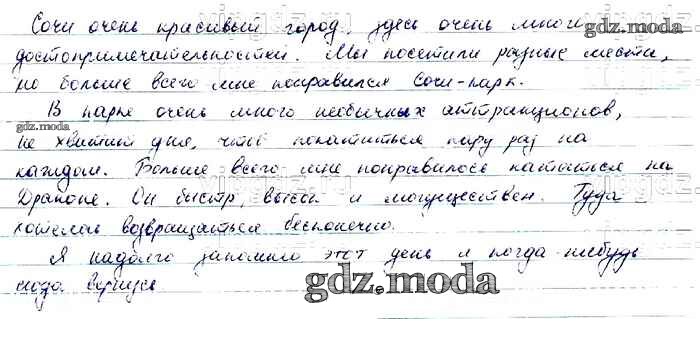 Сочи очень красивый город, здесь очень много
gdz.moda
достопримечательностей. Мы посетили разные места,
но больше всего мне понравился Сочи-парк.
В парке очень много необычных аттракционов,
gdz.moda
не хватит дня, чтоб покататься пару раз на
каждом. Больше всего мне понравилось кататься на
Драконе. Он быстр, высок и могуществен. Туда
хотелось возвращаться бесконечно.
Я надолго запомню этот день и когда-нибудь
gdz.moda
сюда вернусь
gdz.moda